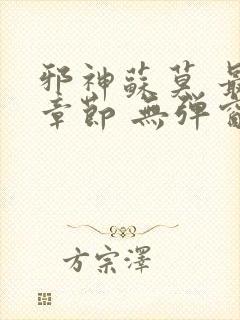 邪神蘇莫 最
章節 無彈窗
方宗澤